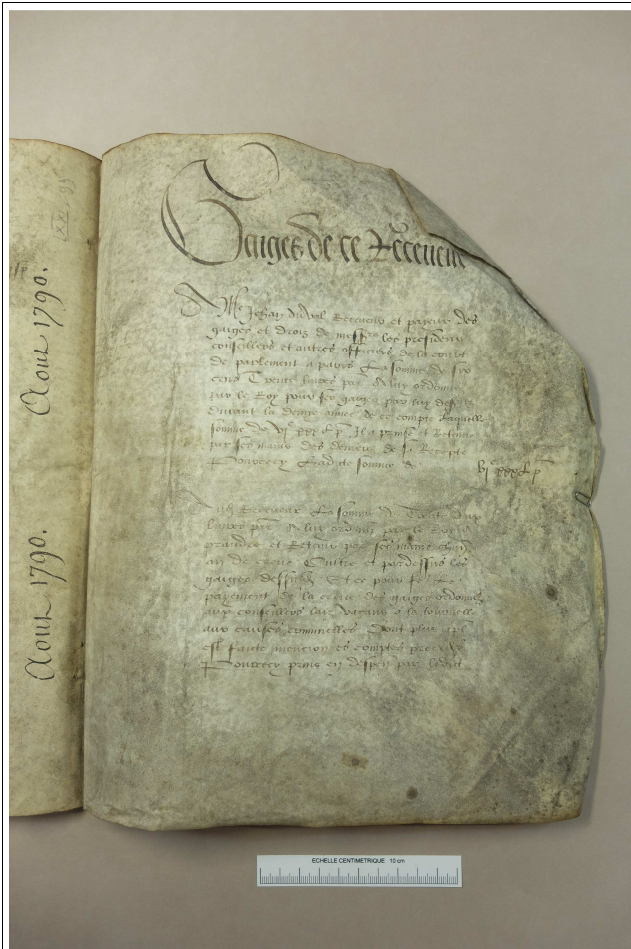 Aoust 1790.
Aoust 1790.
Gaiges de ce Receveur
A Me Jehan Duval Receveur et paieur des
gaiges et droiz de mess les presidens
conseillers et autres officiers de la court
de parlement a paris La somme de six
cens Trente livres par. A luy ordonne
par le Roy pour ses gaiges
Durant la derre annee de ce compte Laquelle
somme de vjc xxx L p. Il a prinse et Retenue
par ses mains des deniers de sa Recepte
Pour cecy Ladicte somme de
vjc xxx L p
Receveur La somme de
livres par. A luy ordonne par le Roy
prandre et Retenir par ses mains chun
an de creue Oultre et pardessus les
gaiges Et ce pour le
payement de la creue des gaiges ordonnez
aux conseillers laiz a la tournelle
aux causes criminelles Dont plus
est faicte mencion es comptes preced
Pour cecy prins en despen par
ECHELLE CENTIMETRIQUE 10 cm